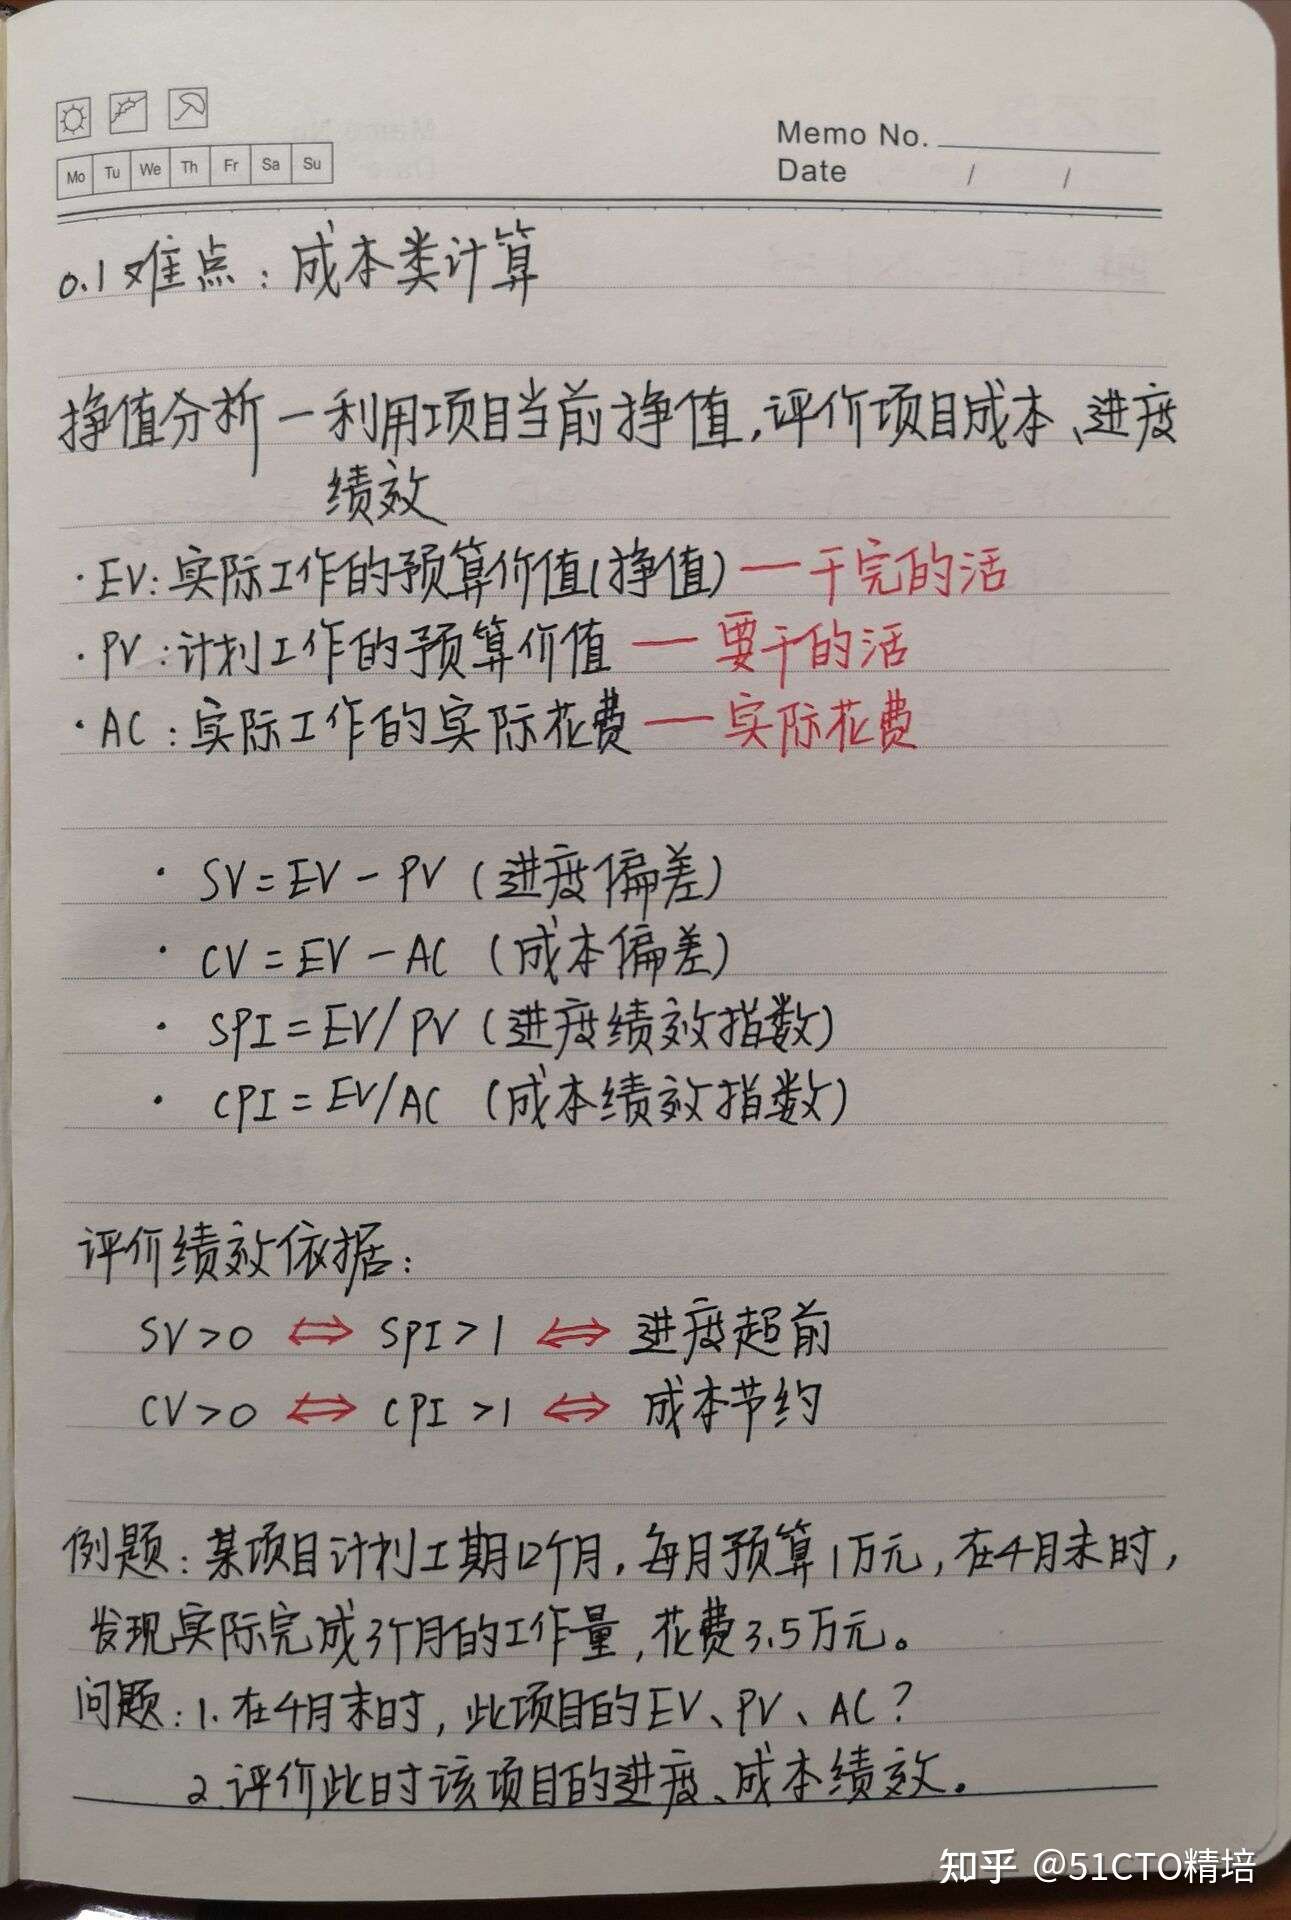 Mo Tu We Th Fr Sa Su
Memo No.
Date / /
0.1 难点：成本类计算
挣值分析—利用项目当前挣值，评价项目成本、进度
绩效
·EV：实际工作的预算价值（挣值）——干完的活
·PV：计划工作的预算价值——要干的活
·AC：实际工作的实际花费——实际花费
· SV=EV-PV（进度偏差）
· CV=EV-AC（成本偏差）
· SPI=EV/PV（进度绩效指数）
· CPI=EV/AC（成本绩效指数）
评价绩效依据：
SV>0 ⇔ SPI>1 ⇔ 进度超前
CV>0 ⇔ CPI>1 ⇔ 成本节约
例题：某项目计划工期12个月，每月预算1万元，在4月末时，
发现实际完成3个月的工作量，花费3.5万元。
问题：1.在4月末时，此项目的EV、PV、AC？
2.评价此时该项目的进度、成本绩效。
知乎 @51CTO精培